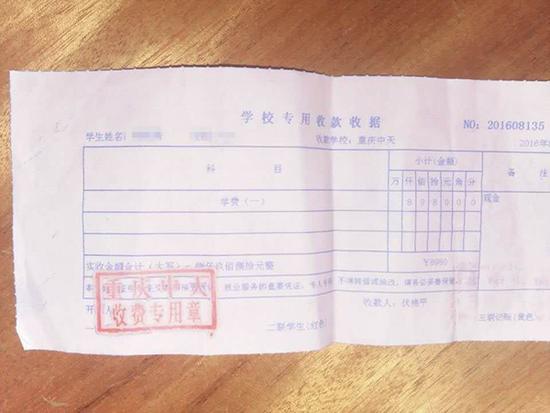 学校专用收款收据
NO: 201608135
学生姓名:
收款学校: 重庆中天
2016年
科 目
小计(金额)
备 注
万 仟 佰 拾 元 角 分
学费(一)
8 9 8 0 0 0
现金
¥8980
实收金额合计(大写): 捌仟玖佰捌拾元整
不填转借或涂改, 请各位妥善保管
收费专用章
收款人: 伏艳平
二联学生(红色)
三联记账(黄色)